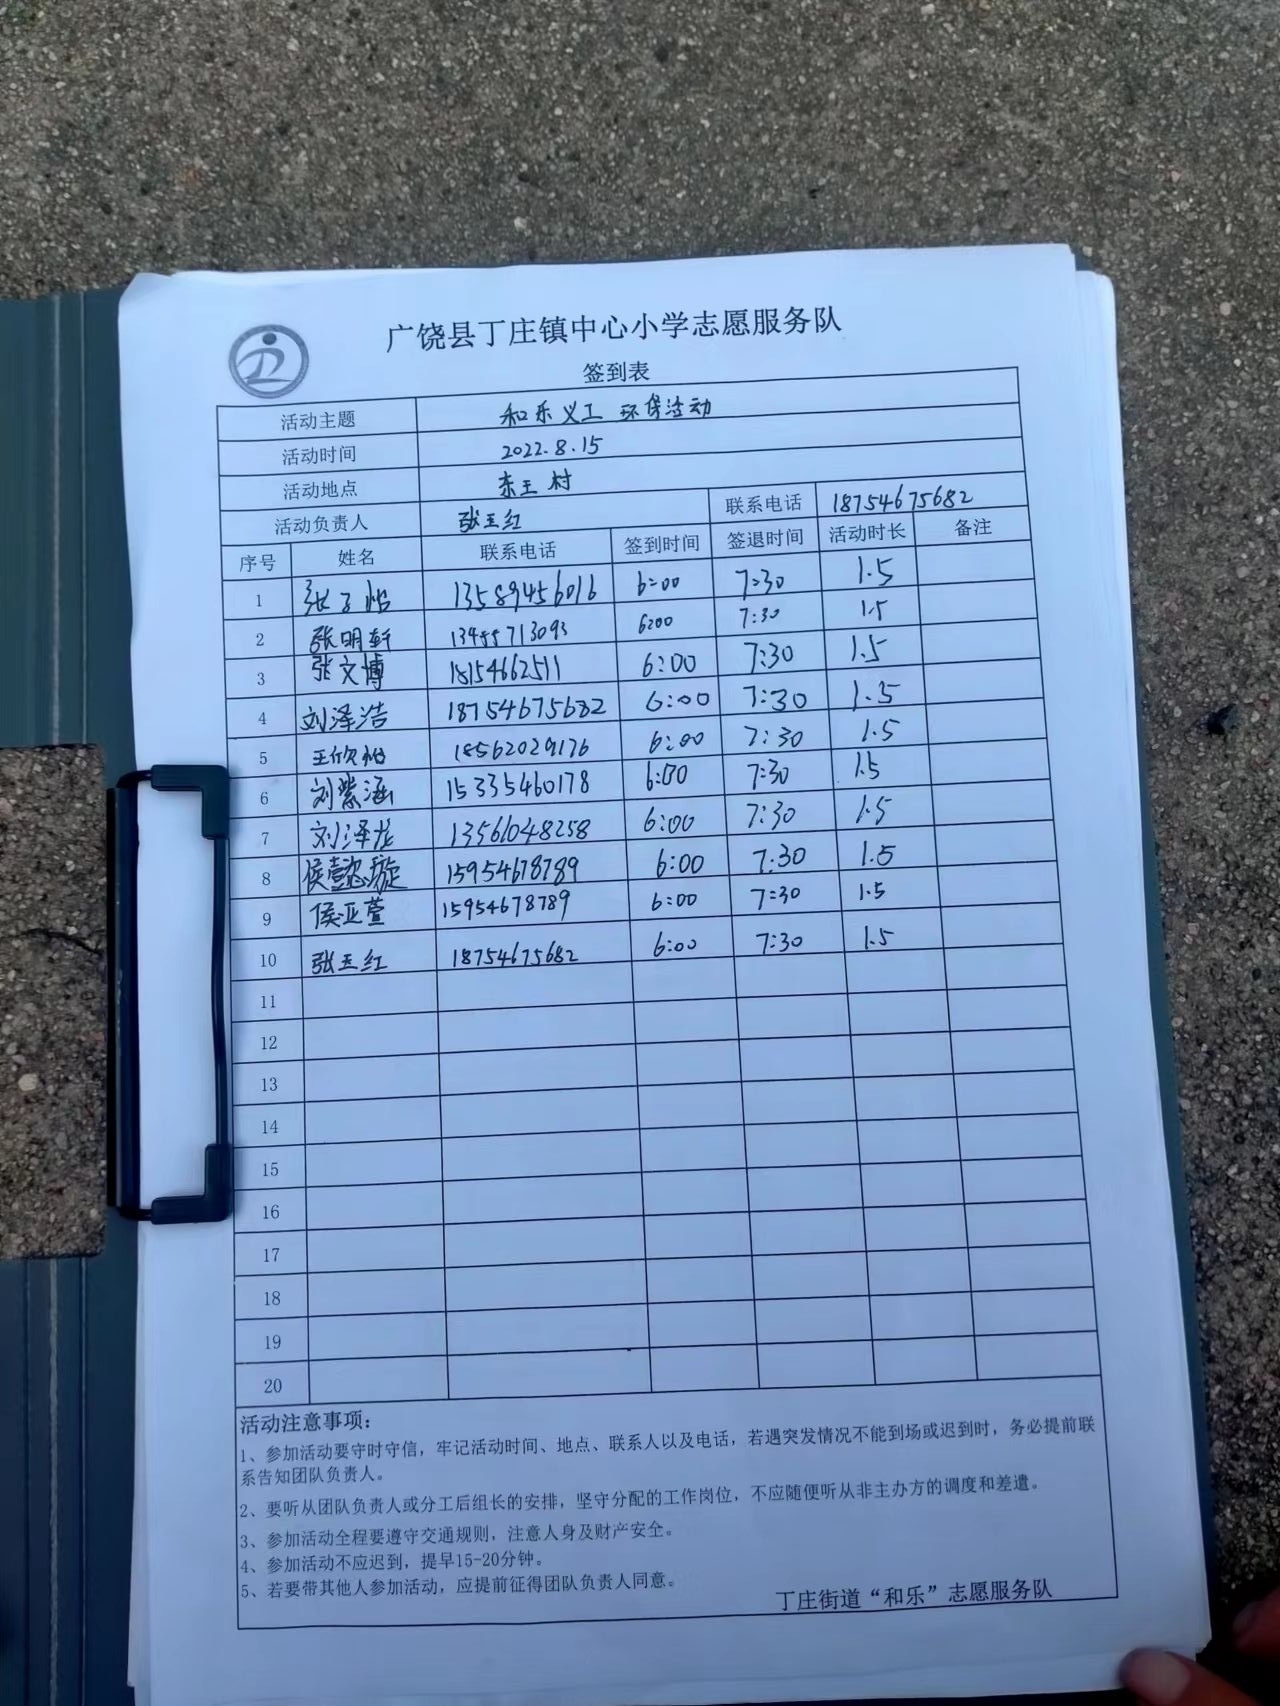 广饶县丁庄镇中心小学志愿服务队
签到表
活动主题 和乐义工 环保活动
活动时间 2022.8.15
活动地点 东王村
活动负责人 张玉红 联系电话 18754675682
序号 姓名 联系电话 签到时间 签退时间 活动时长 备注
1 张子怡 13589456016 6:00 7:30 1.5
2 张明轩 13455713093 6:00 7:30 1.5
3 张文博 18154662511 6:00 7:30 1.5
4 刘泽浩 18754675682 6:00 7:30 1.5
5 王欣怡 18562029176 6:00 7:30 1.5
6 刘紫涵 15335460178 6:00 7:30 1.5
7 刘泽龙 13561048258 6:00 7:30 1.5
8 侯懿璇 15954678789 6:00 7:30 1.5
9 侯亚萱 15954678789 6:00 7:30 1.5
10 张玉红 18754675682 6:00 7:30 1.5
11
12
13
14
15
16
17
18
19
20
活动注意事项：
1、参加活动要守时守信，牢记活动时间、地点、联系人以及电话，若遇突发情况不能到场或迟到时，务必提前联
系告知团队负责人。
2、要听从团队负责人或分工后组长的安排，坚守分配的工作岗位，不应随便听从非主办方的调度和差遣。
3、参加活动全程要遵守交通规则，注意人身及财产安全。
4、参加活动不应迟到，提早15-20分钟。
5、若要带其他人参加活动，应提前征得团队负责人同意。
丁庄街道“和乐”志愿服务队